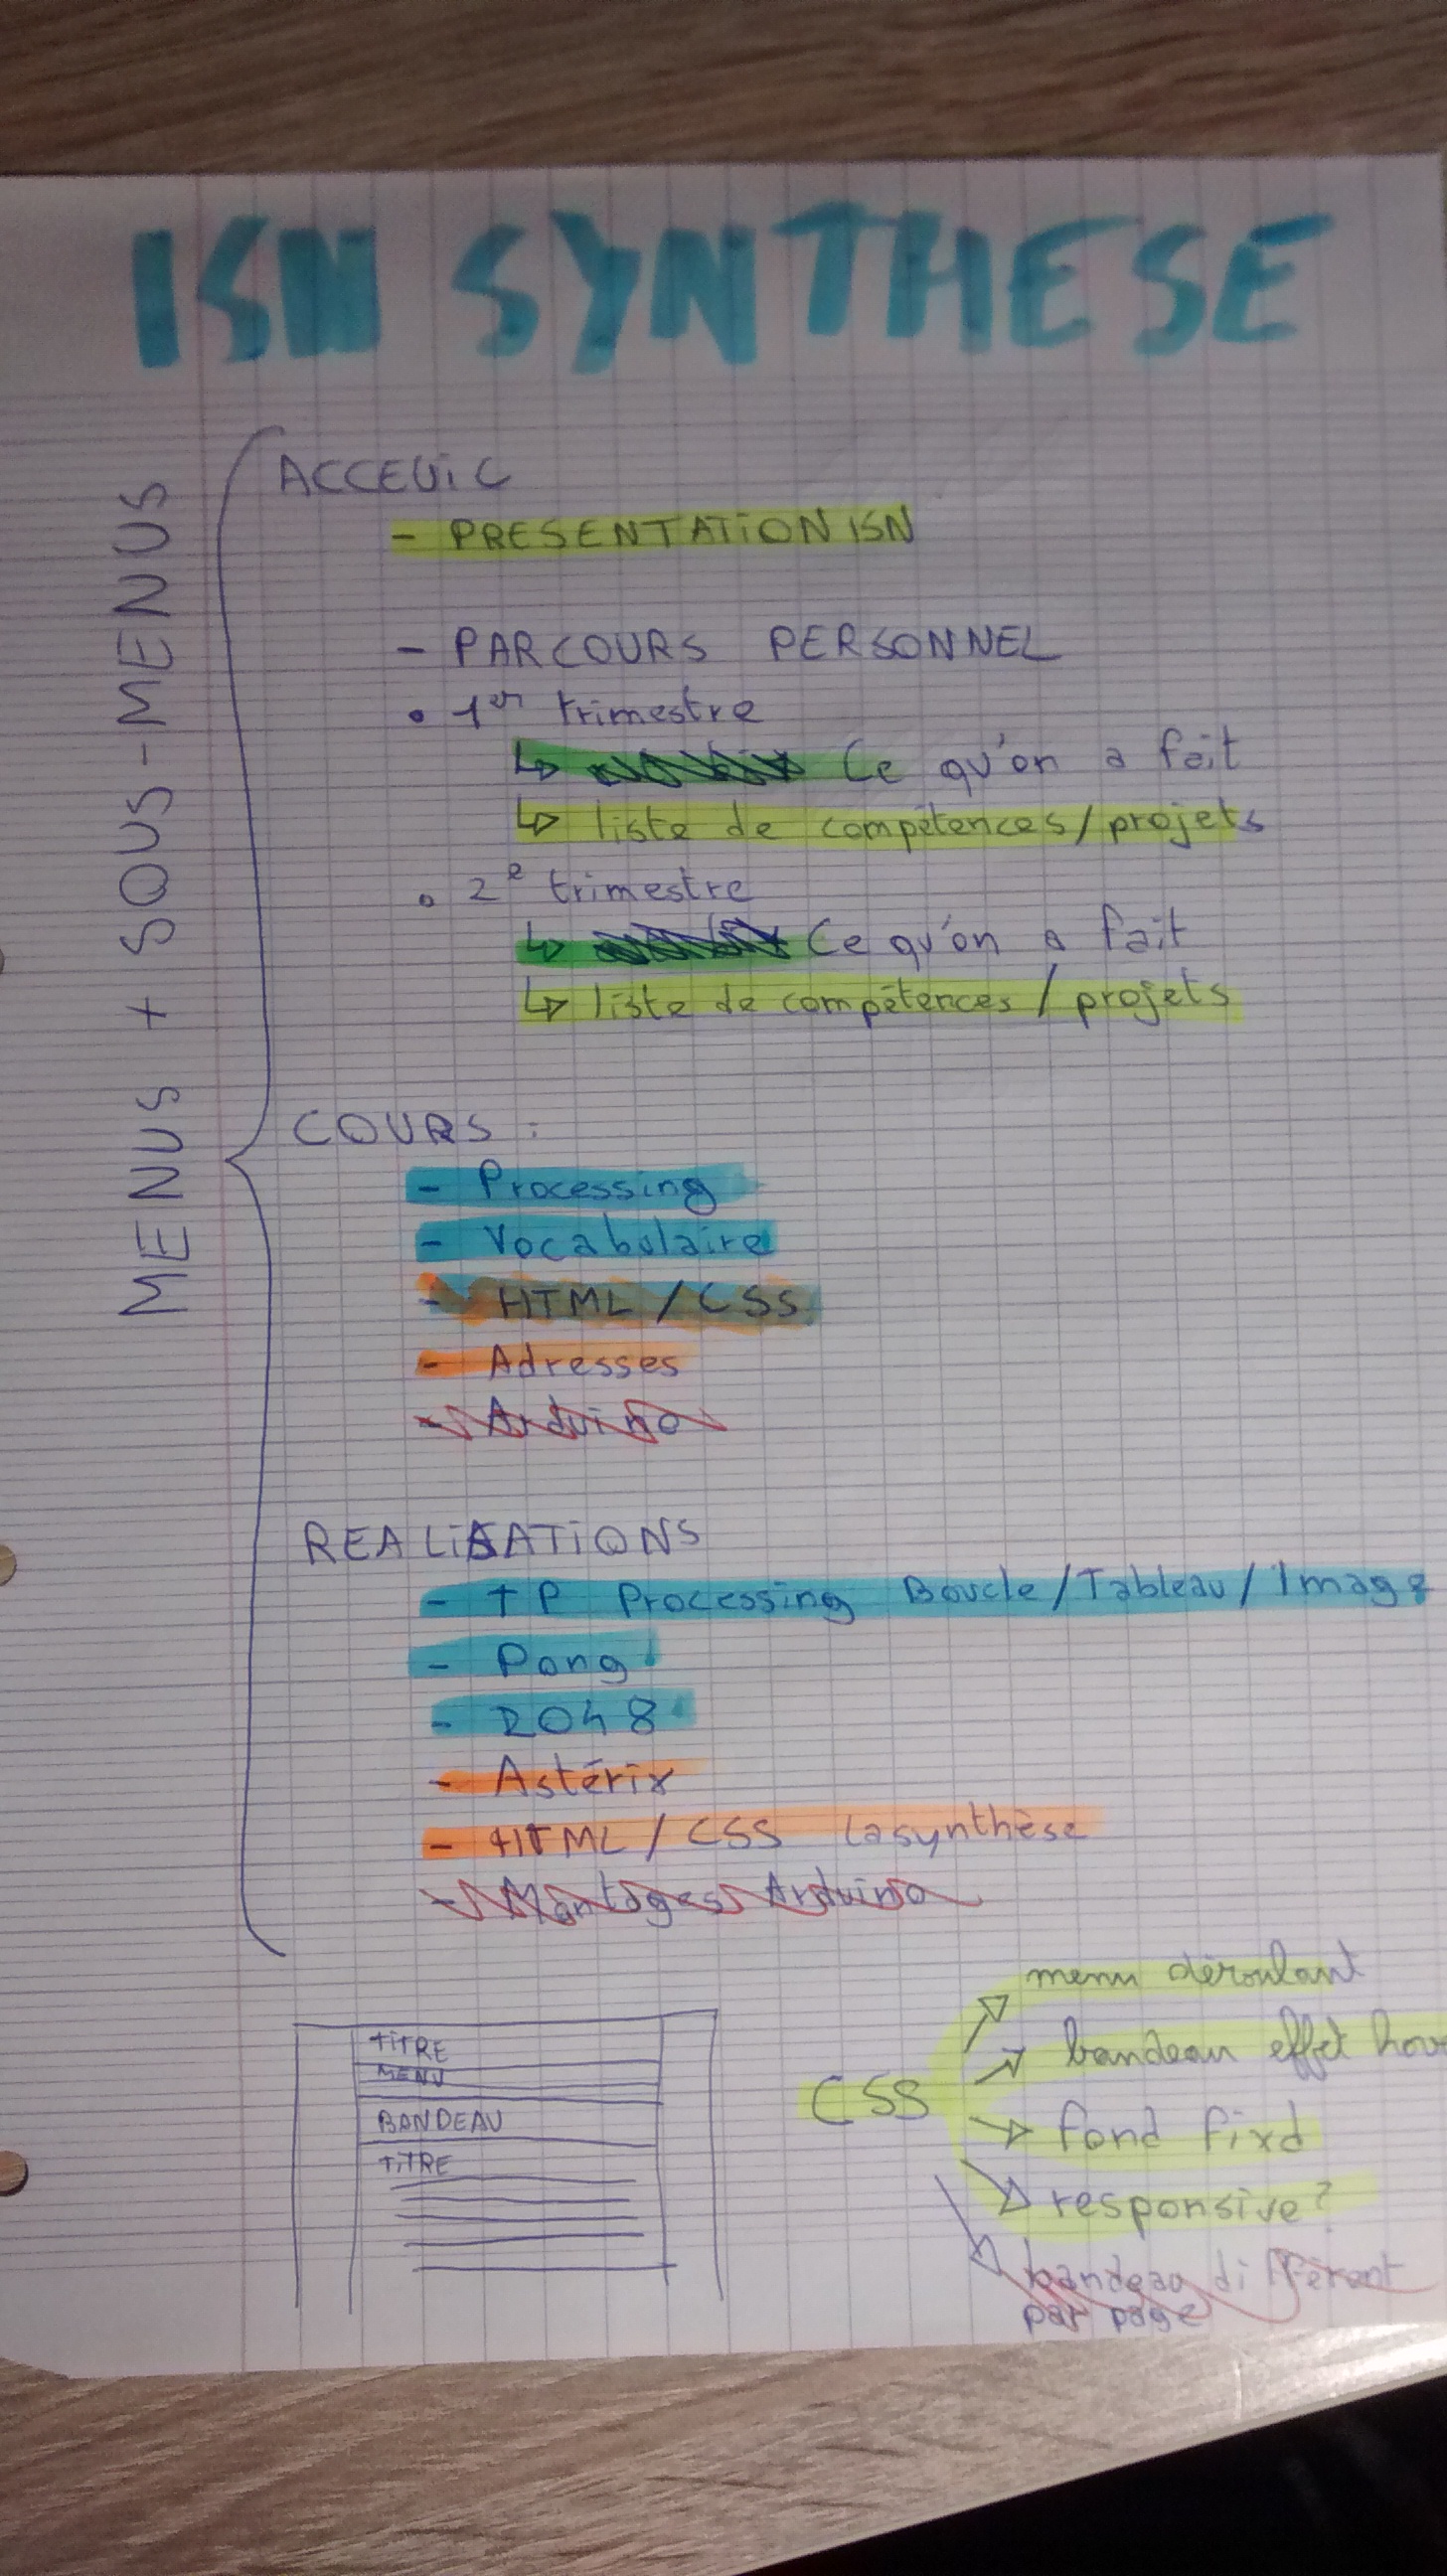 ISN SYNTHESE
MENUS + SOUS-MENUS
ACCEUIL
- PRESENTATION ISN
- PARCOURS PERSONNEL
• 1er trimestre
↳ Ce qu'on a fait
↳ liste de compétences/projets
• 2e trimestre
↳ Ce qu'on a fait
↳ liste de compétences / projets
COURS :
- Processing
- Vocabulaire
- HTML / CSS
- Adresses
- Arduino
REALISATIONS
- TP Processing Boucle/Tableau/Image
- Pong
- 2048
- Astérix
- HTML / CSS la synthèse
- Montages Arduino
TITRE
MENU
BANDEAU
TITRE
CSS
menu déroulant
bandeau effet hov
fond fixd
responsive?
bandeau différent
par page